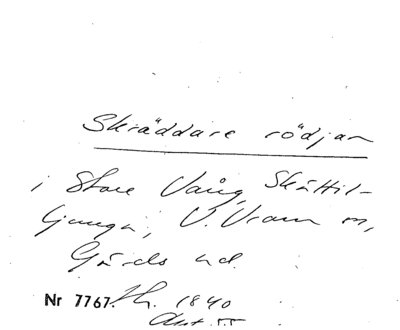 Skräddare rödjan
i Store Vång, Skättil-
ljunga, V. Vram sn,
Gärds hd.
Nr 7767. Th. 1840
Akt 55